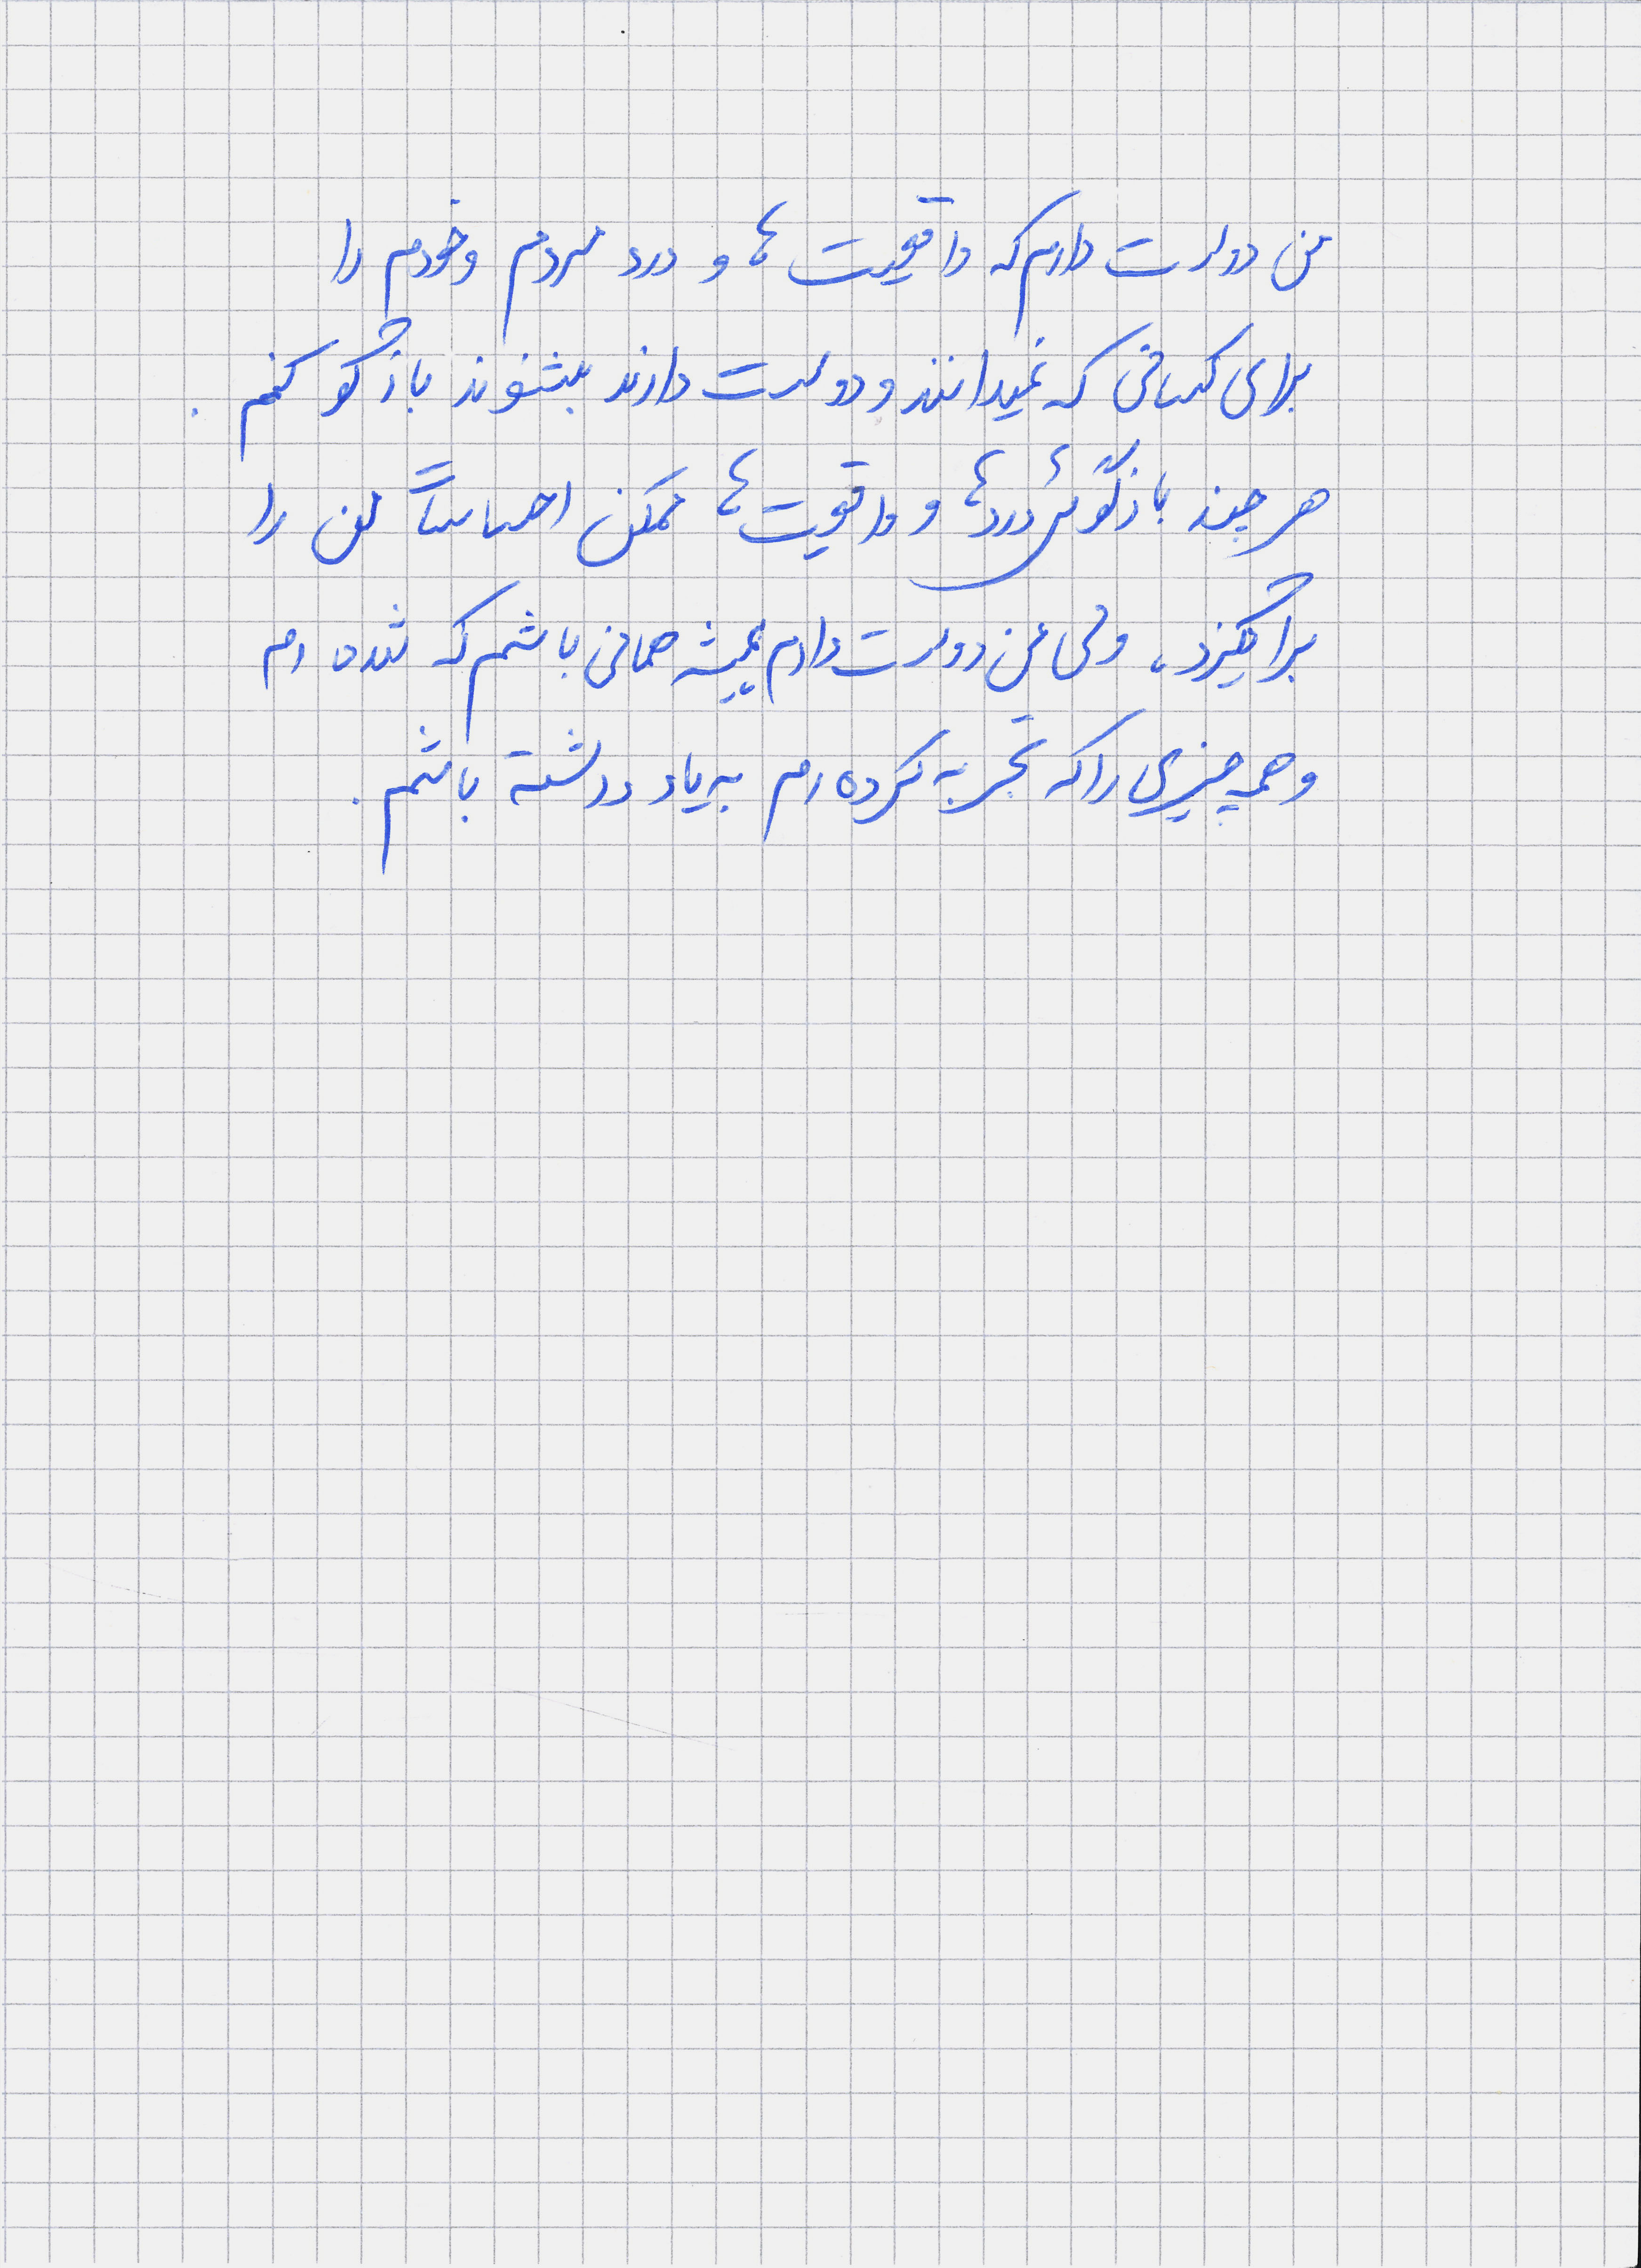 من دوست دارم که واقعیت ها و درد مردم و خودم را
برای کسانی که نمیدانند و دوست دارند بشنوند بازگو کنم .
هر چند بازگوئی دردها و واقعیت ها ممکن احساسات من را
برانگیزد ، ولی من دوست دارم همیشه همانی باشم که شده ام
و همه چیزی را که تجربه کرده ام به یاد داشته باشم .